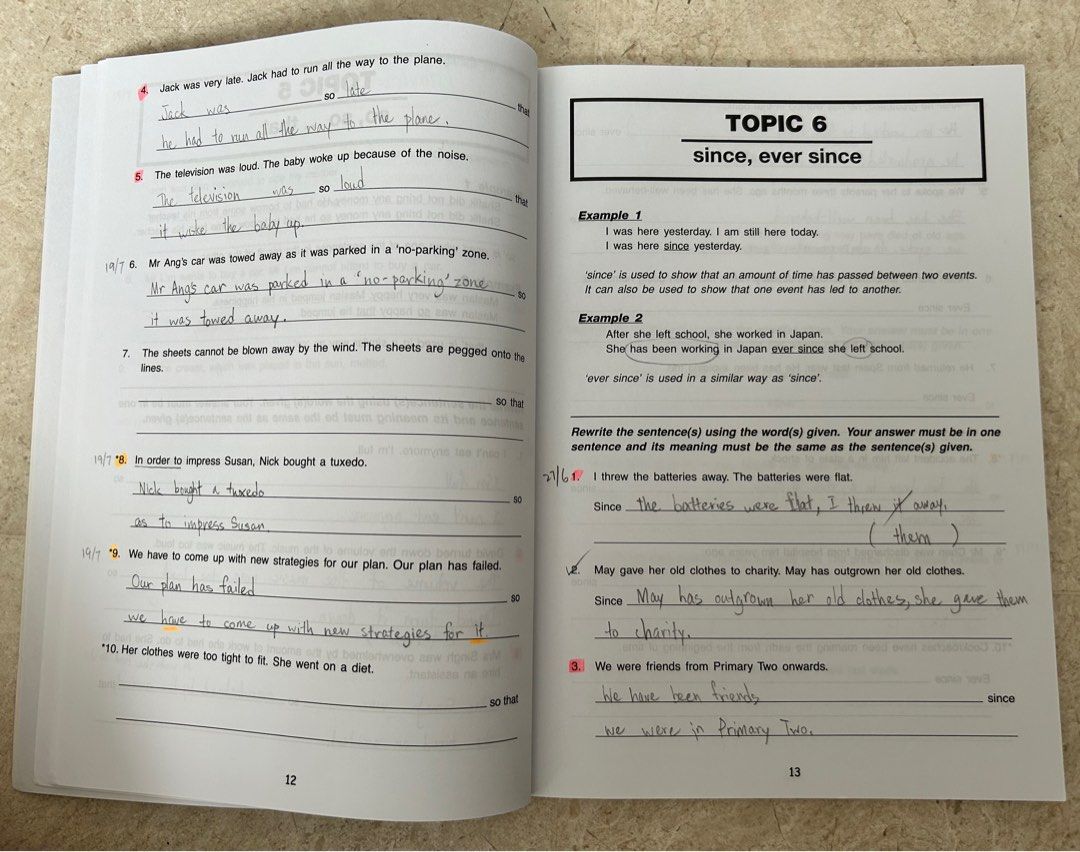 4. Jack was very late. Jack had to run all the way to the plane.
Jack was so late that
he had to run all the way to the plane.
5. The television was loud. The baby woke up because of the noise.
The television was so loud that
it woke the baby up.
19/7 6. Mr Ang's car was towed away as it was parked in a 'no-parking' zone.
Mr Ang's car was parked in a 'no-parking' zone so
it was towed away.
7. The sheets cannot be blown away by the wind. The sheets are pegged onto the
lines.
so that
19/7 *8. In order to impress Susan, Nick bought a tuxedo.
Nick bought a tuxedo so
as to impress Susan.
19/7 *9. We have to come up with new strategies for our plan. Our plan has failed.
Our plan has failed so
we have to come up with new strategies for it.
*10. Her clothes were too tight to fit. She went on a diet.
so that
12
TOPIC 6
since, ever since
Example 1
I was here yesterday. I am still here today.
I was here since yesterday.
'since' is used to show that an amount of time has passed between two events.
It can also be used to show that one event has led to another.
Example 2
After she left school, she worked in Japan.
She has been working in Japan ever since she left school.
'ever since' is used in a similar way as 'since'.
Rewrite the sentence(s) using the word(s) given. Your answer must be in one
sentence and its meaning must be the same as the sentence(s) given.
27/6 1. I threw the batteries away. The batteries were flat.
Since the batteries were flat, I threw it away.
(them)
2. May gave her old clothes to charity. May has outgrown her old clothes.
Since May has outgrown her old clothes, she gave them
to charity.
3. We were friends from Primary Two onwards.
We have been friends since
we were in Primary Two.
13